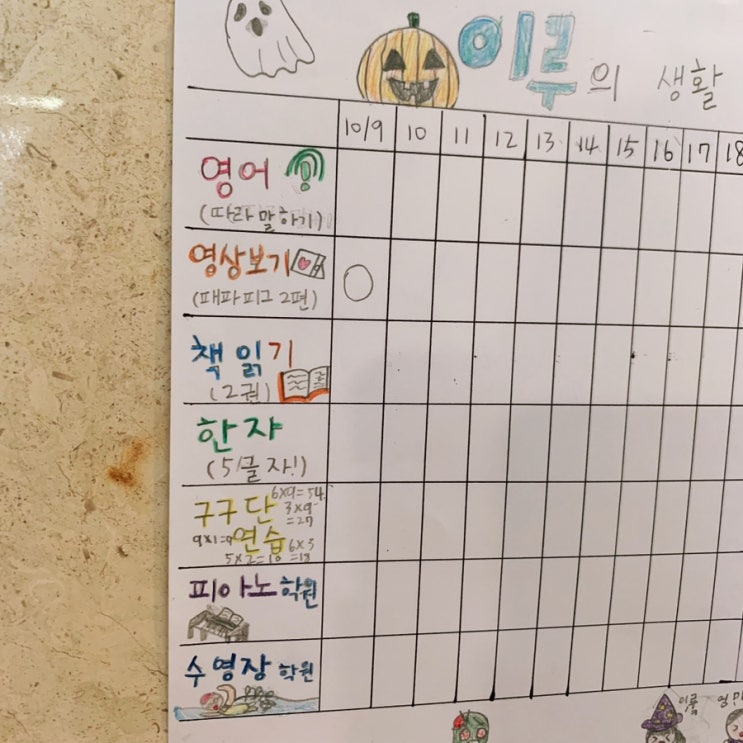 이루의 생활
10/9 10 11 12 13 14 15 16 17 18
영어
(따라 말하기)
영상보기
(패파피그 2편)
책 읽기
(2권)
한자
(5글자!)
구구단
6x9=54
3x9
=27
연습
9x1=9
6x3
=18
5x2=10
피아노 학원
수영장 학원
이룩